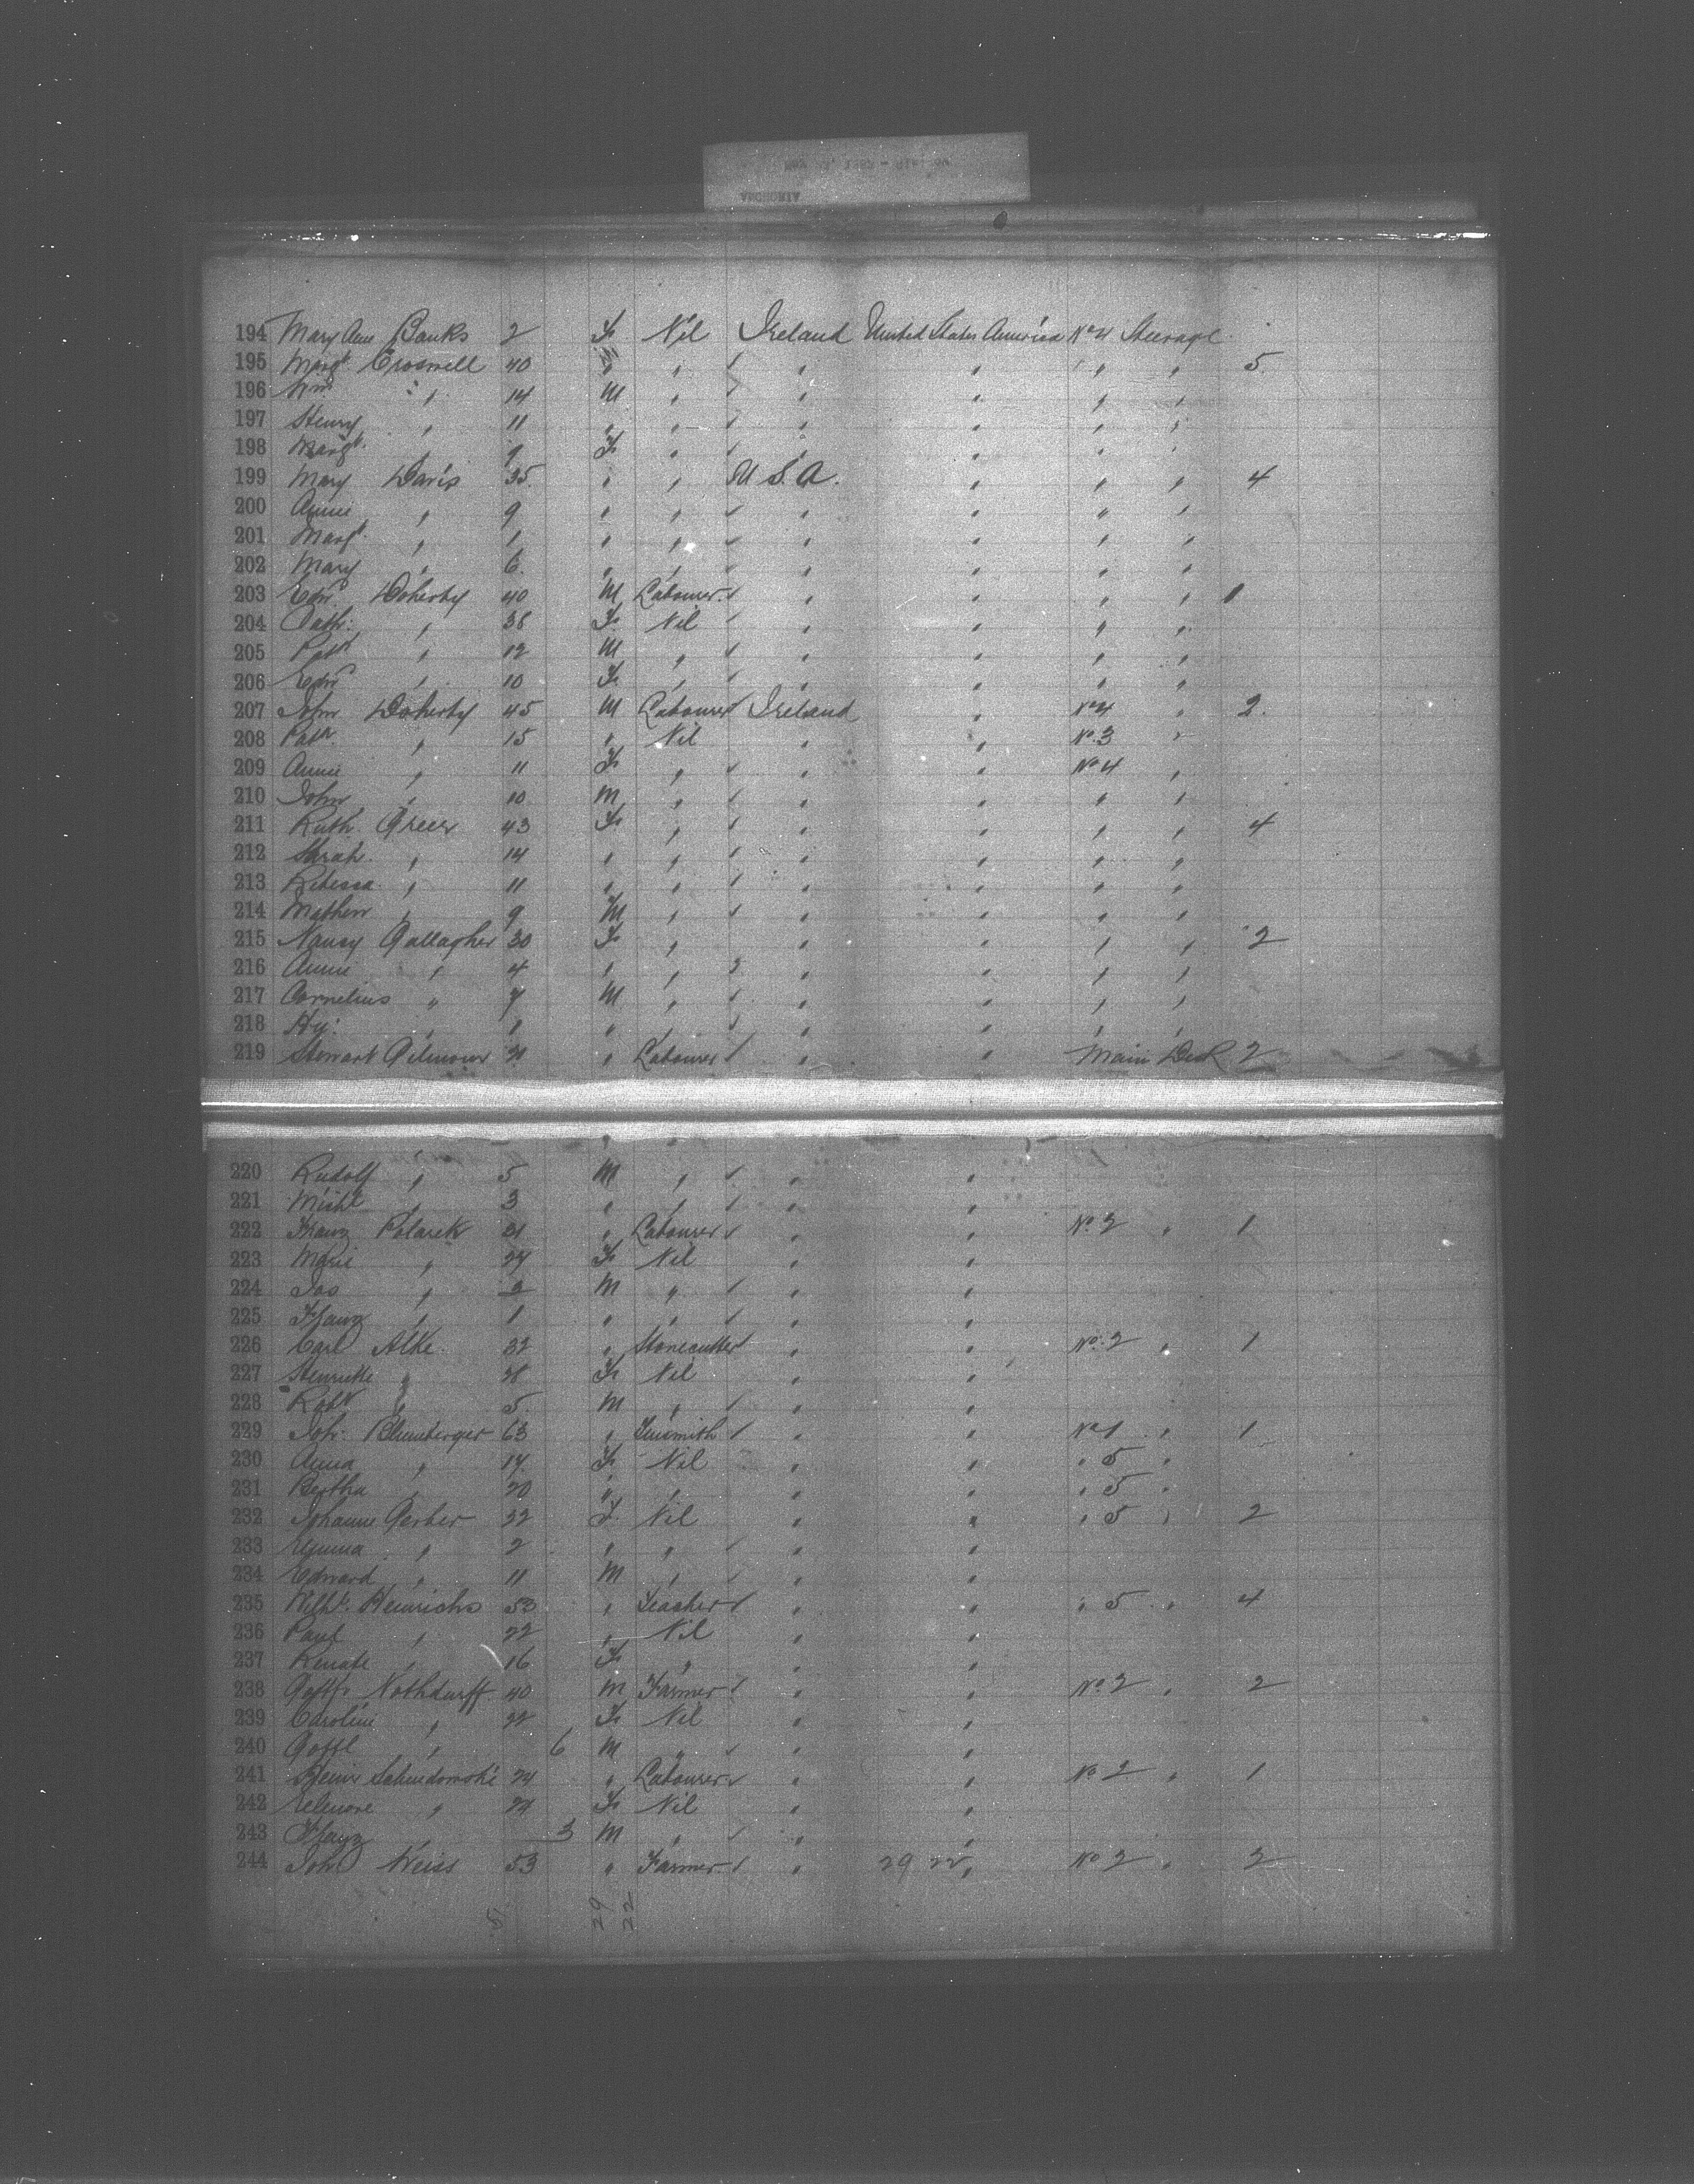 194 Mary Ann Banks 2 F Nil Ireland United States America No 4 Steerage
195 Margt. Croswell 40 " " " " " " 5
196 Wm " 14 M " " " " "
197 Henry " 11 " " " " " "
198 Margt. " 9 F " " " " "
199 Mary Davis 35 " " U.S.A. " " " 4
200 Annie " 9 " " " " " "
201 Margt. " 1 " " " " " "
202 Mary " 6 " " " " " "
203 Edw. Doherty 40 M Labourer " " " " 1
204 Cath: " 38 F Nil " " " "
205 Patk " 12 M " " " " "
206 Edw " 10 F " " " " "
207 John Doherty 45 M Labourer Ireland " No 4 " 2
208 Patk. " 15 " Nil " " No. 3 "
209 Annie " 11 F " " " No 4 "
210 John " 10 M " " " " "
211 Ruth Greer 43 F " " " " " 4
212 Sarah " 14 " " " " " "
213 Rebecca " 11 " " " " " "
214 Mathew " 9 M " " " " "
215 Nancy Gallagher 30 F " " " " " 2
216 Annie " 4 " " " " " "
217 Cornelius " 7 M " " " " "
218 Hy: " 1 " " " " " "
219 Stewart Gilmour 21 " Labourer " " Main Deck 2
220 Rudolf " 5 M " " "
221 Michl " 3 " " " "
222 Franz Polarek 31 " Labourer " " No 2 " 1
223 Marie " 27 F Nil " "
224 Jas " 3 M " " "
225 Franz " 1 " " " "
226 Carl Alke 32 " Stonecutter " " No. 2 " 1
227 Henriette " 28 F Nil " "
228 Robt " 5 M " " "
229 Joh: Blumberger 63 " Tinsmith " " No 1 " 1
230 Anna " 17 F Nil " " " 5 "
231 Bertha " 20 " " " " " 5 "
232 Johanne Gerber 32 F Nil " " " 5 " 2
233 Emma " 2 " " " "
234 Edward " 11 M " " "
235 Heinrichs 53 " Teacher " " " 5 " 4
236 Paul " 22 " Nil " "
237 Renate " 16 F " " "
238 Gottf. Nothdurff 40 M Farmer " " No 2 " 2
239 Caroline " 22 F Nil " "
240 Gottl " 6 M " " "
241 24 " Labourer " " No 2 " 1
242 Elenore " 24 F Nil " "
243 Franz " 3 M " " "
244 Joh Weiss 53 " Farmer " 29 22 " No 2 " 2
5 29 22